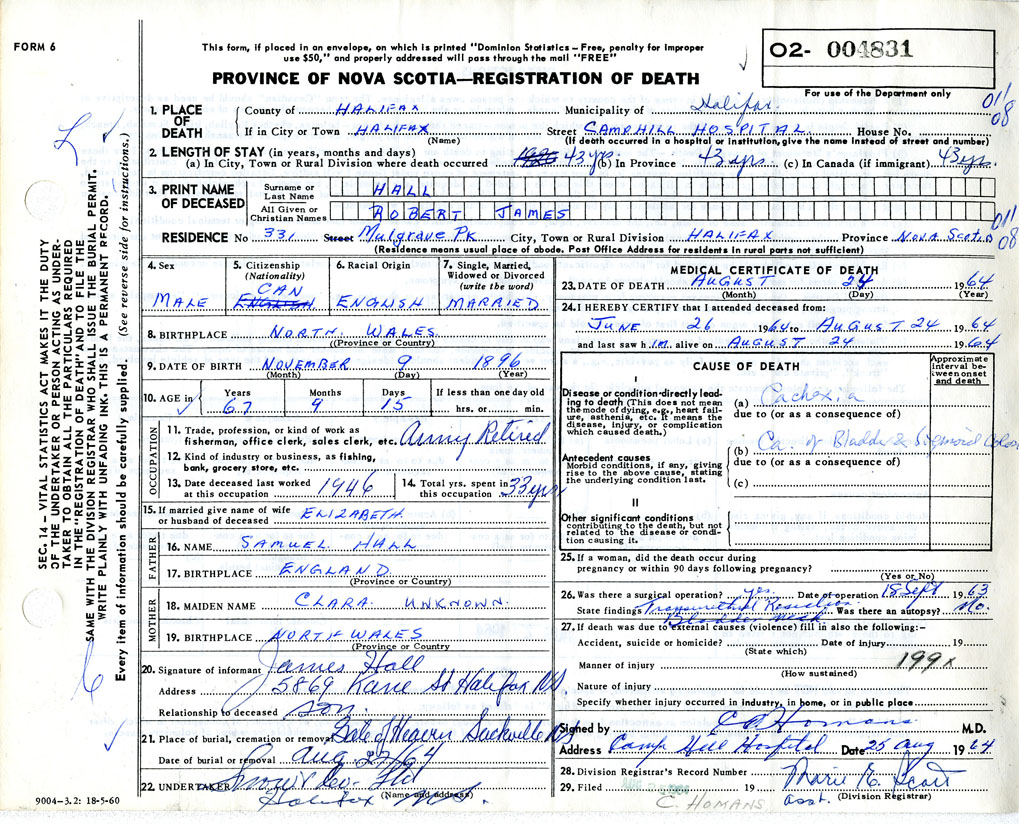 FORM 6
This form, if placed in an envelope, on which is printed "Dominion Statistics – Free, penalty for improper
use $50," and properly addressed will pass through the mail "FREE"
PROVINCE OF NOVA SCOTIA—REGISTRATION OF DEATH
O2- 004831
For use of the Department only
011
08
1. PLACE OF DEATH
County of HALIFAX Municipality of Halifax
If in City or Town HALIFAX Street CAMPHILL HOSPITAL House No.
(Name) (If death occurred in a hospital or institution, give the name instead of street and number)
2. LENGTH OF STAY (in years, months and days)
(a) In City, Town or Rural Division where death occurred 43 yrs. (b) In Province 43 yrs. (c) In Canada (if immigrant) 43 yrs.
3. PRINT NAME OF DECEASED
Surname or Last Name HALL
All Given or Christian Names ROBERT JAMES
011
08
RESIDENCE No 331 Street Mulgrave Pk City, Town or Rural Division HALIFAX Province NOVA SCOTIA
(Residence means usual place of abode. Post Office Address for residents in rural parts not sufficient)
4. Sex
MALE
5. Citizenship
(Nationality)
CAN
ENGLISH
6. Racial Origin
ENGLISH
7. Single, Married, Widowed or Divorced
(write the word)
MARRIED
8. BIRTHPLACE NORTH WALES
(Province or Country)
9. DATE OF BIRTH NOVEMBER 9 1896
(Month) (Day) (Year)
10. AGE in
Years 67 Months 9 Days 15
If less than one day old
hrs. or min.
OCCUPATION
11. Trade, profession, or kind of work as
fisherman, office clerk, sales clerk, etc. Army Retired
12. Kind of industry or business, as fishing,
bank, grocery store, etc.
13. Date deceased last worked
at this occupation 1946
14. Total yrs. spent in
this occupation 33 yrs
15. If married give name of wife
or husband of deceased ELIZABETH
FATHER
16. NAME SAMUEL HALL
17. BIRTHPLACE ENGLAND
(Province or Country)
MOTHER
18. MAIDEN NAME CLARA UNKNOWN
19. BIRTHPLACE NORTH WALES
(Province or Country)
20. Signature of informant James Hall
Address 5869 Kane St Halifax N.S.
Relationship to deceased son.
21. Place of burial, cremation or removal Gate of Heaven Sackville NS
Date of burial or removal Aug 27/64
22. UNDERTAKER Snow & Co. Ltd
Halifax N.S.
(Name and address)
MEDICAL CERTIFICATE OF DEATH
23. DATE OF DEATH AUGUST 24 1964
(Month) (Day) (Year)
24. I HEREBY CERTIFY that I attended deceased from:
JUNE 26 1964 to AUGUST 24 1964
and last saw h im alive on AUGUST 24 1964
CAUSE OF DEATH
Approximate interval between onset and death
I
Disease or condition directly leading to death (This does not mean the mode of dying, e.g., heart failure, asthenia, etc. it means the disease, injury, or complication which caused death.)
(a) Cachexia
due to (or as a consequence of)
Antecedent causes
Morbid conditions, if any, giving rise to the above cause, stating the underlying condition last.
(b) Ca. of Bladder & Sigmoid Colon
due to (or as a consequence of)
(c)
II
Other significant conditions
contributing to the death, but not related to the disease or condition causing it.
25. If a woman, did the death occur during
pregnancy or within 90 days following pregnancy?
(Yes or No)
26. Was there a surgical operation? yes. Date of operation 18 Sept 1963
State findings Transurethral Resection Bladder neck Was there an autopsy? No.
27. If death was due to external causes (violence) fill in also the following:–
Accident, suicide or homicide? Date of injury 19
(State which)
Manner of injury 199x
(How sustained)
Nature of injury
Specify whether injury occurred in industry, in home, or in public place
Signed by C A Homans M.D.
Address Camp Hill Hospital Date 25 Aug 1964
28. Division Registrar's Record Number
29. Filed 19 Marie E. Scott
asst. (Division Registrar)
C. HOMANS
SEC. 14 – VITAL STATISTICS ACT MAKES IT THE DUTY
OF THE UNDERTAKER OR PERSON ACTING AS UNDER-
TAKER TO OBTAIN ALL THE PARTICULARS REQUIRED
IN THE "REGISTRATION OF DEATH" AND TO FILE THE
SAME WITH THE DIVISION REGISTRAR WHO SHALL ISSUE THE BURIAL PERMIT.
WRITE PLAINLY WITH UNFADING INK. THIS IS A PERMANENT RECORD.
Every item of information should be carefully supplied. (See reverse side for instructions.)
9004–3.2: 18-5-60